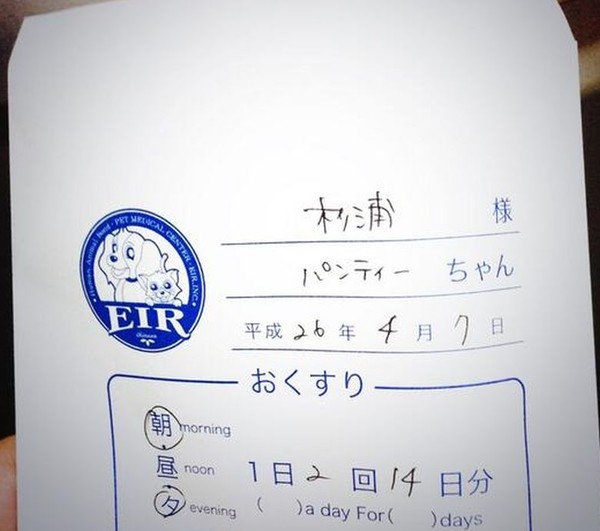 杉浦 様
パンティー ちゃん
平成26年4月7日
Human Animal Bond・PET MEDICAL CENTER・EIR,INC.
EIR
おくすり
朝 morning
昼 noon
1日2回14日分
夕 evening
( )a day For( )days